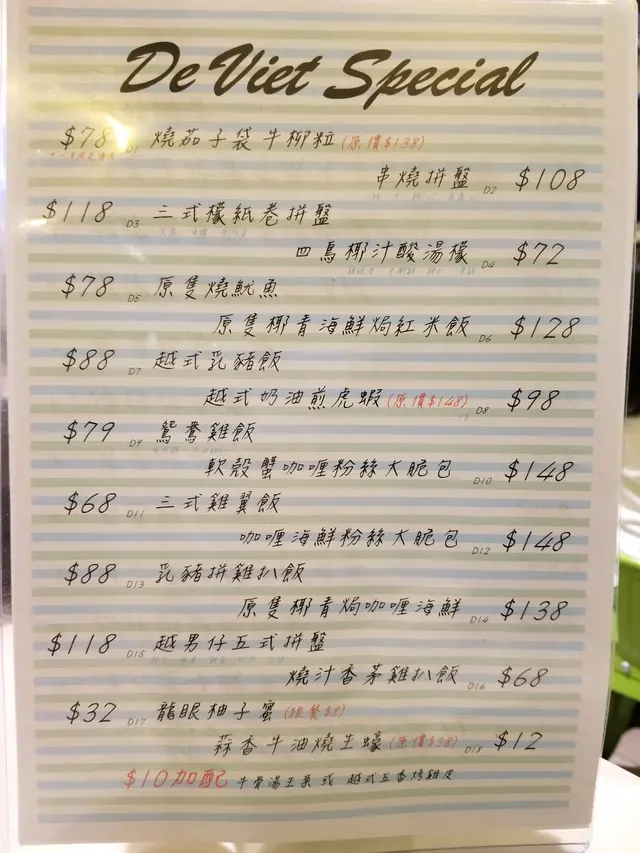 De Viet Special
$78 D1 燒茄子袋牛柳粒 (原價$138)
串燒拼盤 D2 $108
$118 D3 三式檬紙卷拼盤
四島椰汁酸湯檬 D4 $72
$78 D5 原隻燒魷魚
原隻椰青海鮮焗紅米飯 D6 $128
$88 D7 越式乳豬飯
越式奶油煎虎蝦 (原價$148) D8 $98
$79 D9 鴛鴦雞飯
軟殼蟹咖喱粉絲大脆包 D10 $148
$68 D11 三式雞翼飯
咖喱海鮮粉絲大脆包 D12 $148
$88 D13 乳豬拼雞扒飯
原隻椰青焗咖喱海鮮 D14 $138
$118 D15 越男仔五式拼盤
燒汁香茅雞扒飯 D16 $68
$32 D17 龍眼柚子蜜
蒜香牛油燒生蠔 (原價$38) D18 $12
$10加配 牛骨湯生菜 或 越式五香烤雞皮